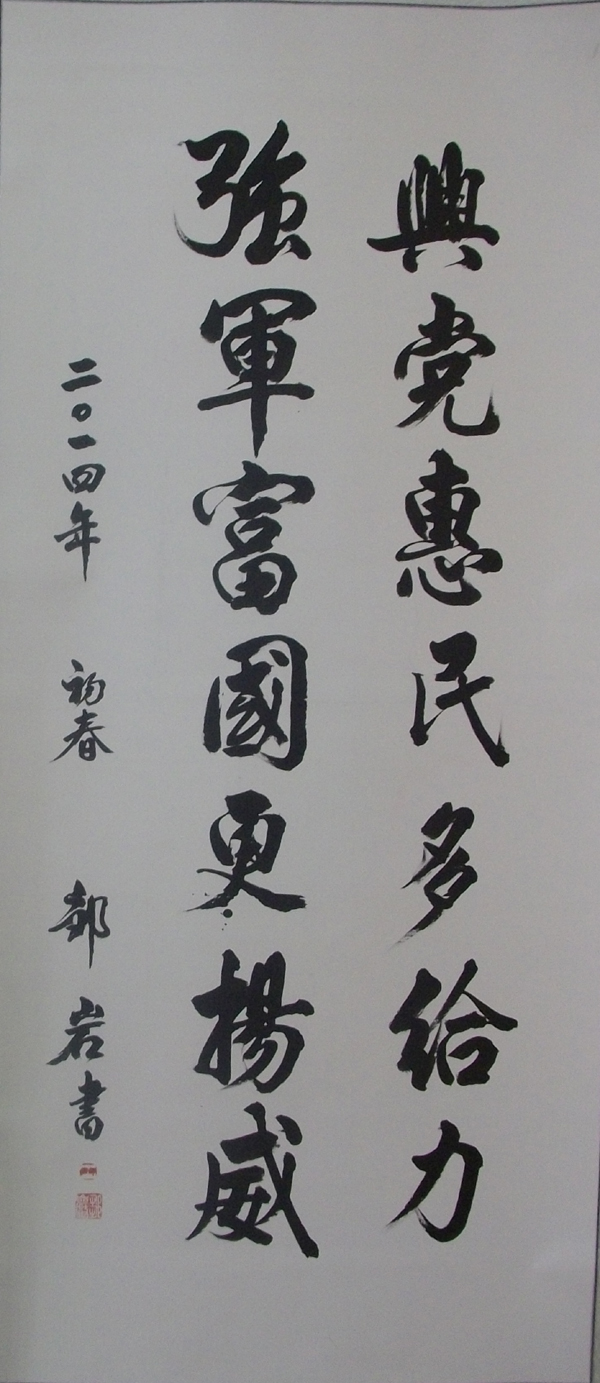 興党惠民多给力
強軍富國更揚威
二〇一四年 初春 郝岩書